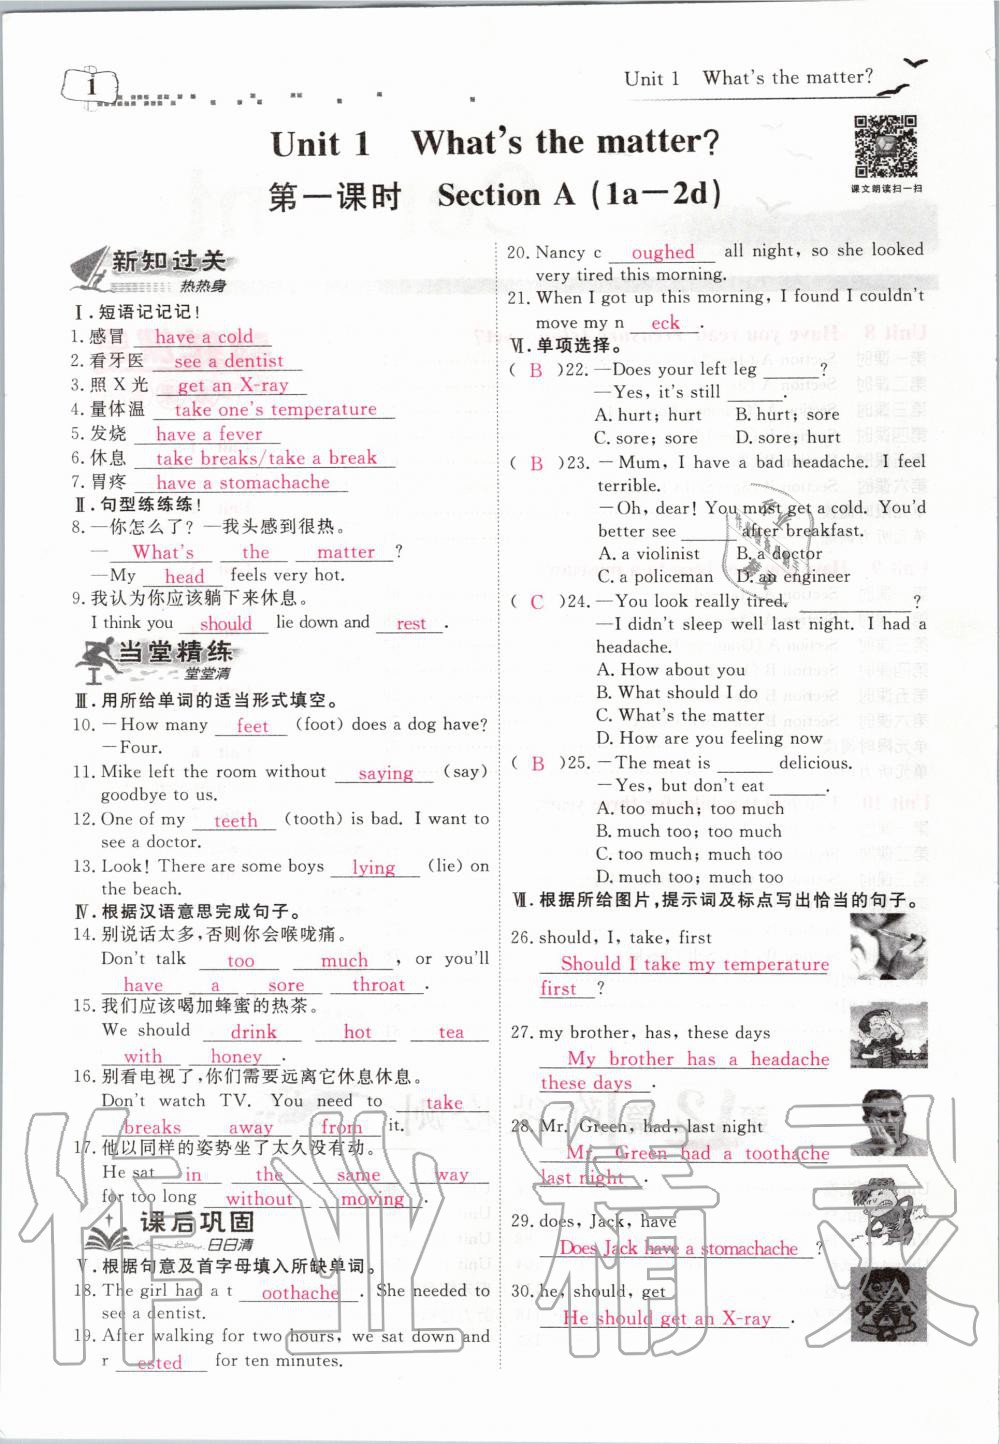 1
Unit 1 What's the matter?
Unit 1 What's the matter?
第一课时 Section A (1a－2d)
课文朗读扫一扫
新知过关
热热身
Ⅰ.短语记记记!
1.感冒 have a cold
2.看牙医 see a dentist
3.照 X 光 get an X-ray
4.量体温 take one's temperature
5.发烧 have a fever
6.休息 take breaks/take a break
7.胃疼 have a stomachache
Ⅱ.句型练练练!
8.—你怎么了? —我头感到很热。
— What's the matter ?
—My head feels very hot.
9.我认为你应该躺下来休息。
I think you should lie down and rest .
当堂精练
堂堂清
Ⅲ.用所给单词的适当形式填空。
10.－How many feet (foot) does a dog have?
－Four.
11. Mike left the room without saying (say)
goodbye to us.
12. One of my teeth (tooth) is bad. I want to
see a doctor.
13. Look! There are some boys lying (lie) on
the beach.
Ⅳ.根据汉语意思完成句子。
14.别说话太多,否则你会喉咙痛。
Don't talk too much , or you'll
have a sore throat .
15.我们应该喝加蜂蜜的热茶。
We should drink hot tea
with honey .
16.别看电视了,你们需要远离它休息休息。
Don't watch TV. You need to take
breaks away from it.
17.他以同样的姿势坐了太久没有动。
He sat in the same way
for too long without moving .
课后巩固
日日清
Ⅴ.根据句意及首字母填入所缺单词。
18. The girl had a t oothache . She needed to
see a dentist.
19. After walking for two hours, we sat down and
r ested for ten minutes.
20. Nancy c oughed all night, so she looked
very tired this morning.
21. When I got up this morning, I found I couldn't
move my n eck .
Ⅵ.单项选择。
( B )22. —Does your left leg ______?
—Yes, it's still ______.
A. hurt; hurt B. hurt; sore
C. sore; sore D. sore; hurt
( B )23. －Mum, I have a bad headache. I feel
terrible.
－Oh, dear! You must get a cold. You'd
better see ______ after breakfast.
A. a violinist B. a doctor
C. a policeman D. an engineer
( C )24. —You look really tired. ____________?
—I didn't sleep well last night. I had a
headache.
A. How about you
B. What should I do
C. What's the matter
D. How are you feeling now
( B )25. －The meat is ______ delicious.
－Yes, but don't eat ______.
A. too much; too much
B. much too; too much
C. too much; much too
D. much too; much too
Ⅶ.根据所给图片,提示词及标点写出恰当的句子。
26. should, I, take, first
Should I take my temperature
first ?
27. my brother, has, these days
My brother has a headache
these days .
28. Mr. Green, had, last night
Mr. Green had a toothache
last night .
29. does, Jack, have
Does Jack have a stomachache ?
30. he, should, get
He should get an X-ray .
作业精灵